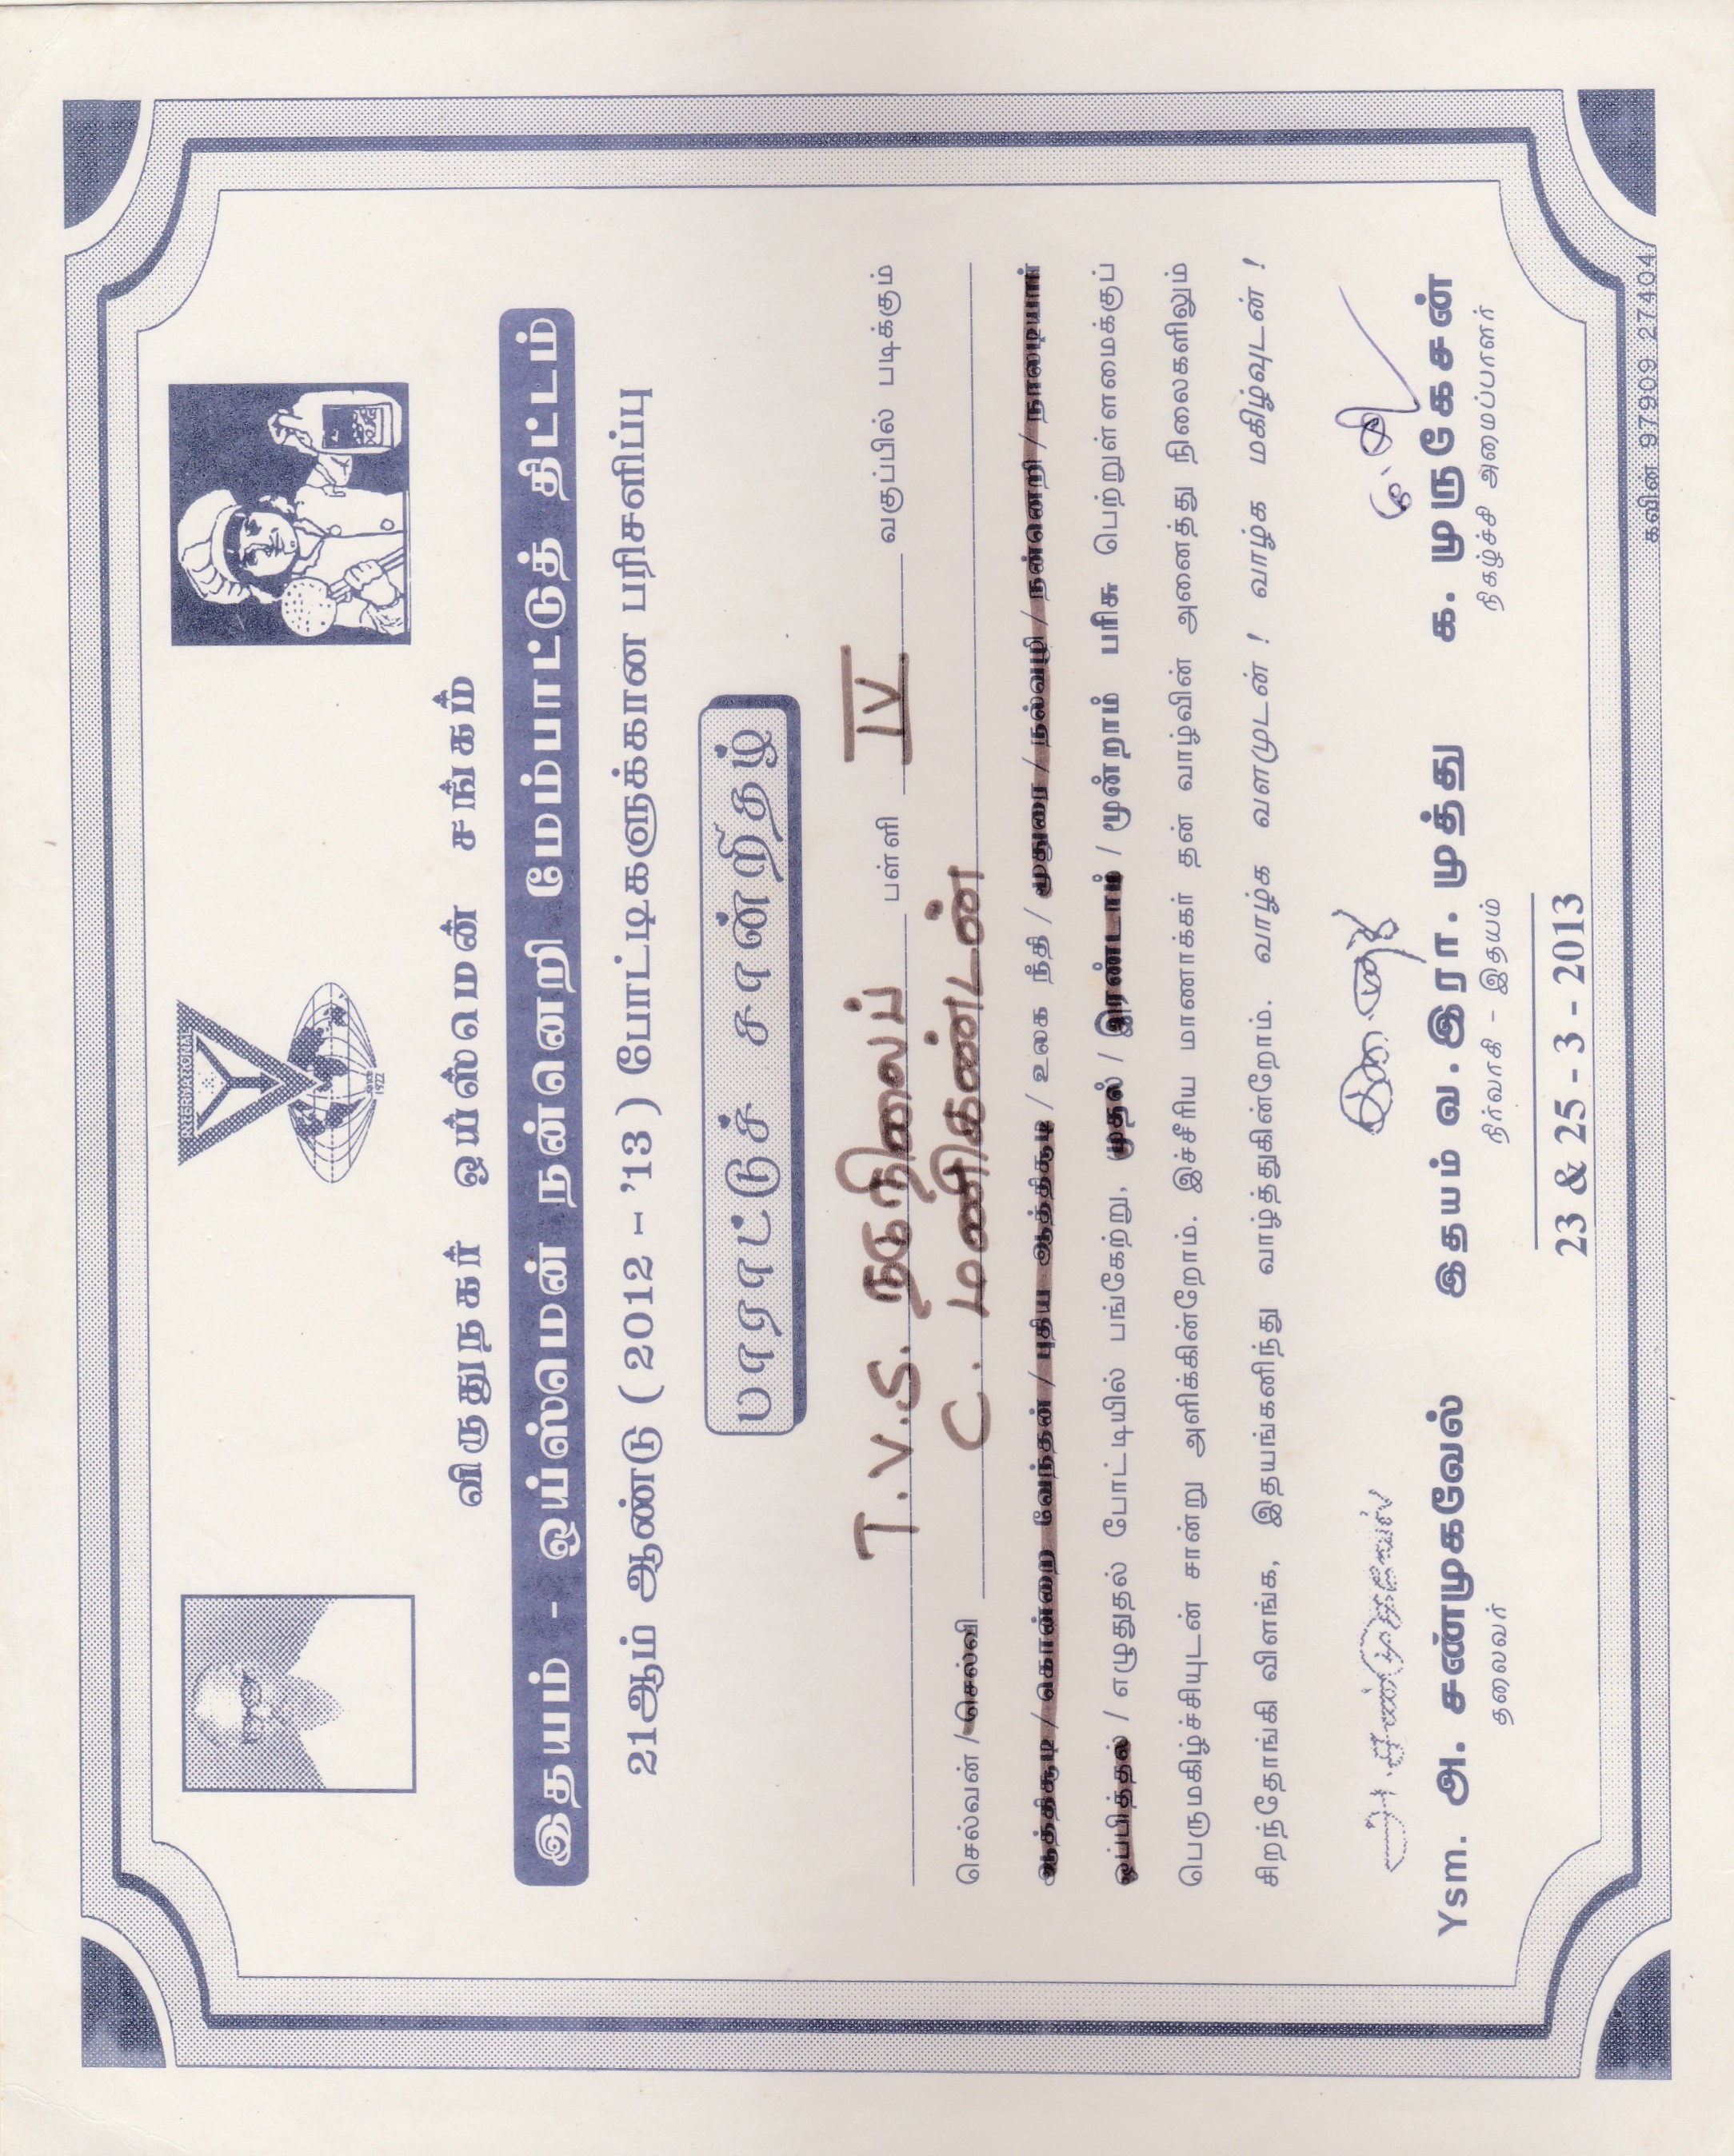 INTERNATIONAL
SINCE 1922
விருதுநகர் ஒய்ஸ்மென் சங்கம்
இதயம் - ஒய்ஸ்மென் நன்னெறி மேம்பாட்டுத் திட்டம்
21ஆம் ஆண்டு ( 2012 – '13 ) போட்டிகளுக்கான பரிசளிப்பு
பாராட்டுச் சான்றிதழ்
T.V.S. நடுநிலைப் பள்ளி IV வகுப்பில் படிக்கும்
செல்வன் / செல்வி C. மணிகண்டன்
ஆத்திசூடி / கொன்றை வேந்தன் / புதிய ஆத்திசூடி / உலக நீதி / மூதுரை / நல்வழி / நன்னெறி / நாலடியார்
ஒப்பித்தல் / எழுதுதல் போட்டியில் பங்கேற்று, முதல் / இரண்டாம் / மூன்றாம் பரிசு பெற்றுள்ளமைக்குப்
பெருமகிழ்ச்சியுடன் சான்று அளிக்கின்றோம். இச்சீரிய மாணாக்கர் தன் வாழ்வின் அனைத்து நிலைகளிலும்
சிறந்தோங்கி விளங்க, இதயங்கனிந்து வாழ்த்துகின்றோம். வாழ்க வளமுடன் ! வாழ்க மகிழ்வுடன் !
அ. சண்முகவேல்
Ysm. அ. சண்முகவேல் இதயம் வ.இரா. முத்து க. முருகேசன்
தலைவர் நிர்வாகி - இதயம் நிகழ்ச்சி அமைப்பாளர்
23 & 25 - 3 - 2013
கவின் 97909 27404